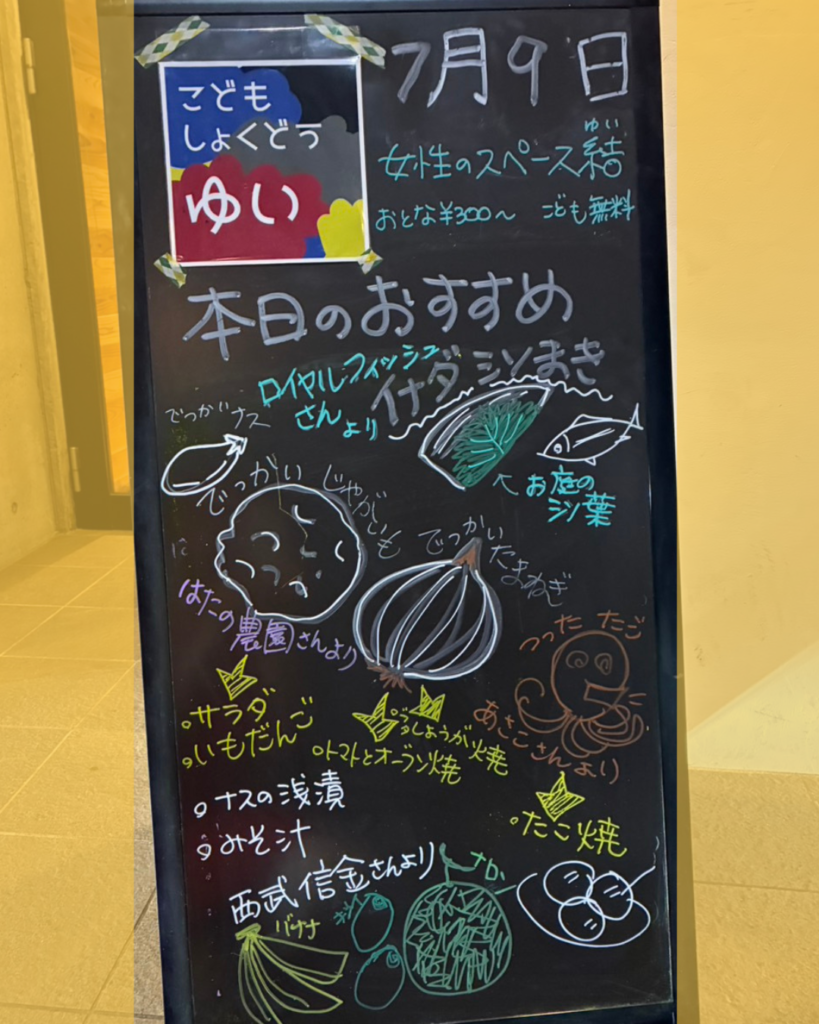 7月9日
こども
しょくどう
ゆい
ゆい
女性のスペース結
おとな¥300〜 こども無料
本日のおすすめ
ロイヤルフィッシュ
さんより
イナダ シソまき
でっかいナス
お庭の
シソ葉
でっかい じゃがいも
でっかい たまねぎ
はたの農園さんより
つった たこ
あさこさんより
・サラダ
・いもだんご
・しょうが焼
・トマトとオーブン焼
・たこ焼
・ナスの浅漬
・みそ汁
西武信金さんより
バナナ
メロン